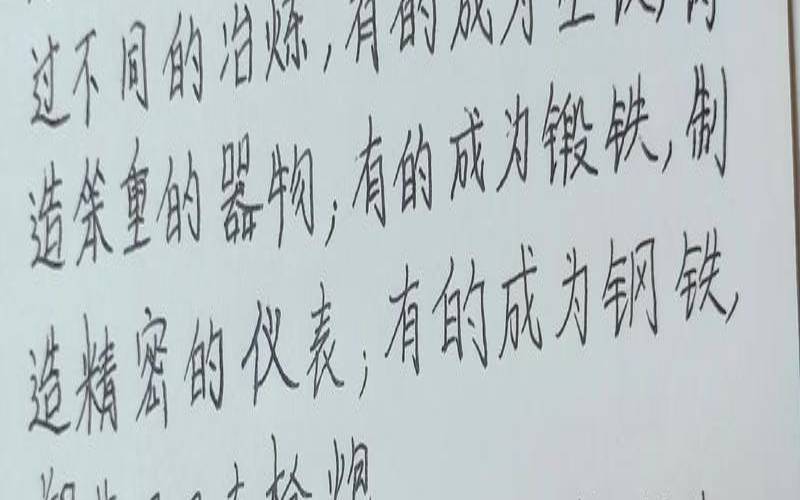 过不同的冶炼,有的成为生铁,
造笨重的器物;有的成为锻铁,制
造精密的仪表;有的成为钢铁,
枪炮